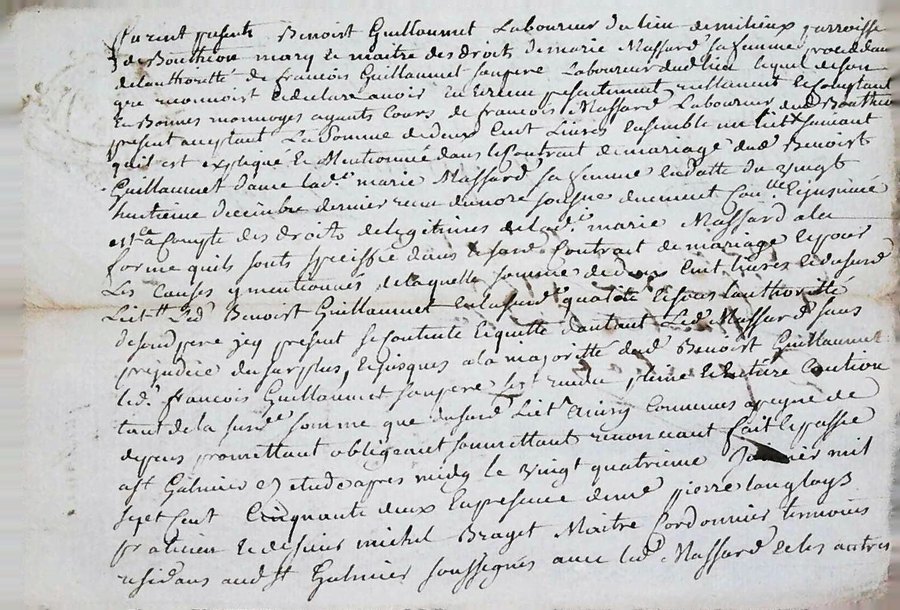 furent presents Benoist Guillaumet Laboureur du lieu de milieux parroisse
de Bouthion mary et maitre des droits de marie Massard sa femme procedant
de lauthorité de francois Guillaumet son pere Laboureur dud lieu lequel de son
gre reconnoist et declare avoir eu et receu presentement reellement et comptant
en Bonnes monnoyes ayants cours de francois Massard Laboureur dud Bouthion
present acceptant La somme de deux cent Livres ensemble un Lict suivant
quil est expliqué et Mentionné dans le contrait de mariage dud Benoist
Guillaumet d'avec lad.e marie Massard sa femme en datte du vingt
huitieme decembre dernier receu de notre soussigné duement et insinué
et ce a compte des droits de legitimes de lad.e marie Massard a la
forme quils sonts speciffié dans led contrait de mariage et pour
les causes y mentionnés de laquelle somme de deux cent livres et dusurd
Lict led Benoist Guillaumet en lasusd.e qualité et sous lauthoritte
de sond pere jcy present se contente et quitte dautant led Massard sans
prejudice du surplus, et jusques a la majoritté dud Benoist Guillaumet
led. francois Guillaumet son pere sest rendu plene et entière caution
tant de la susd.e somme que dusurd Lict Ainsy convenus a peyne de
depens promettant obligeant soumettant renonceant fait et passé
a St Galmier en etude apres midy le vingt quatrieme Janvier mil
sept cent cinquante deux en presence de me pierre Langloys
praticien et de sieur michel Braget Maitre Cordonnier temoins
residans aud St Galmier soussignés avec led Massard et les autres